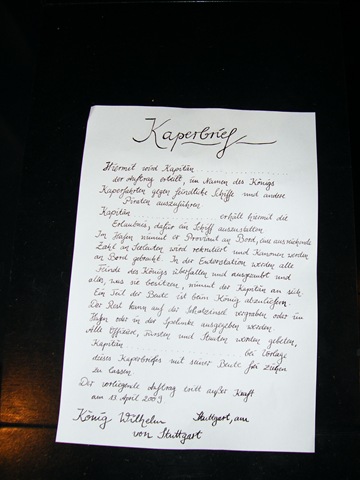 Kaperbrief
Hiermit wird Kapitän ....................
der Auftrag erteilt, im Namen des Königs
Kaperfahrten gegen feindliche Schiffe und andere
Piraten auszuführen
Kapitän .................... erhält hiermit die
Erlaubnis, dafür ein Schiff auszustatten
Im Hafen nimmt er Proviant an Bord, eine ausreichende
Zahl an Seeleuten wird rekrutiert und Kanonen werden
an Bord gebracht. In der Enterstation werden alle
Feinde des Königs überfallen und ausgeraubt und
alles, was sie besitzen, nimmt der Kapitän an sich.
Ein Teil der Beute ist beim König abzuliefern.
Der Rest kann auf der Schatzinsel vergraben oder im
Hafen oder in der Spelunke ausgegeben werden.
Alle Offiziere, Fürsten und Staaten werden gebeten,
Kapitän .................... bei Vorlage
dieses Kaperbriefes mit seiner Beute frei ziehen
zu lassen.
Der vorliegende Auftrag tritt außer Kraft
am 13. April 2009
König Wilhelm Stuttgart, am
von Stuttgart